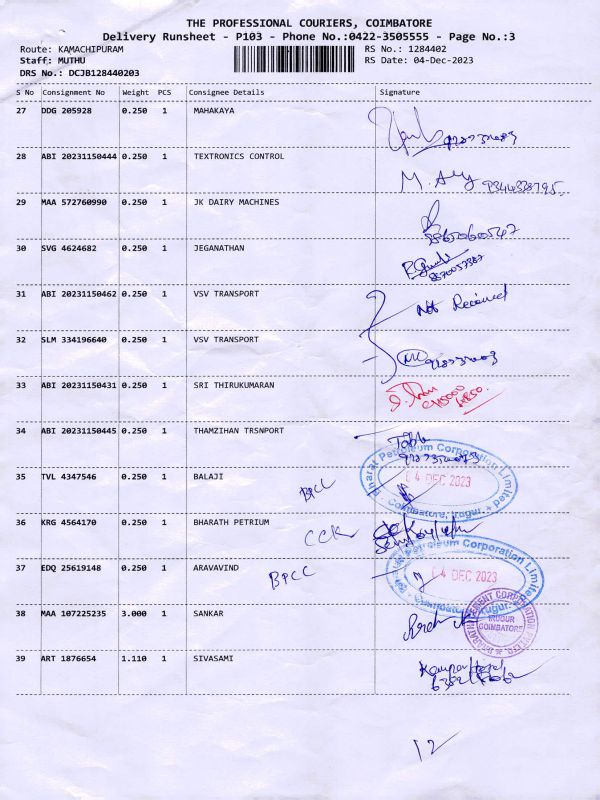 THE PROFESSIONAL COURIERS, COIMBATORE
Delivery Runsheet - P103 - Phone No.:0422-3505555 - Page No.:3
Route: KAMACHIPURAM RS No.: 1284402
Staff: MUTHU RS Date: 04-Dec-2023
DRS No.: DCJB128440203
S No Consignment No Weight PCS Consignee Details Signature
27 DDG 205928 0.250 1 MAHAKAYA
28 ABI 20231150444 0.250 1 TEXTRONICS CONTROL
M. 9344338795
29 MAA 572760990 0.250 1 JK DAIRY MACHINES
30 SVG 4624682 0.250 1 JEGANATHAN
31 ABI 20231150462 0.250 1 VSV TRANSPORT
Not Received
32 SLM 334196640 0.250 1 VSV TRANSPORT
33 ABI 20231150431 0.250 1 SRI THIRUKUMARAN
34 ABI 20231150445 0.250 1 THAMZIHAN TRSNPORT
35 TVL 4347546 0.250 1 BALAJI
BPCL
Bharat Petroleum Corporation Limited
04 DEC 2023
Coimbatore, Irugur.
36 KRG 4564170 0.250 1 BHARATH PETRIUM
CCK
37 EDQ 25619148 0.250 1 ARAVAVIND
BPCL
Petroleum Corporation Limited
04 DEC 2023
38 MAA 107225235 3.000 1 SANKAR
IRUGUR
COIMBATORE
39 ART 1876654 1.110 1 SIVASAMI
12